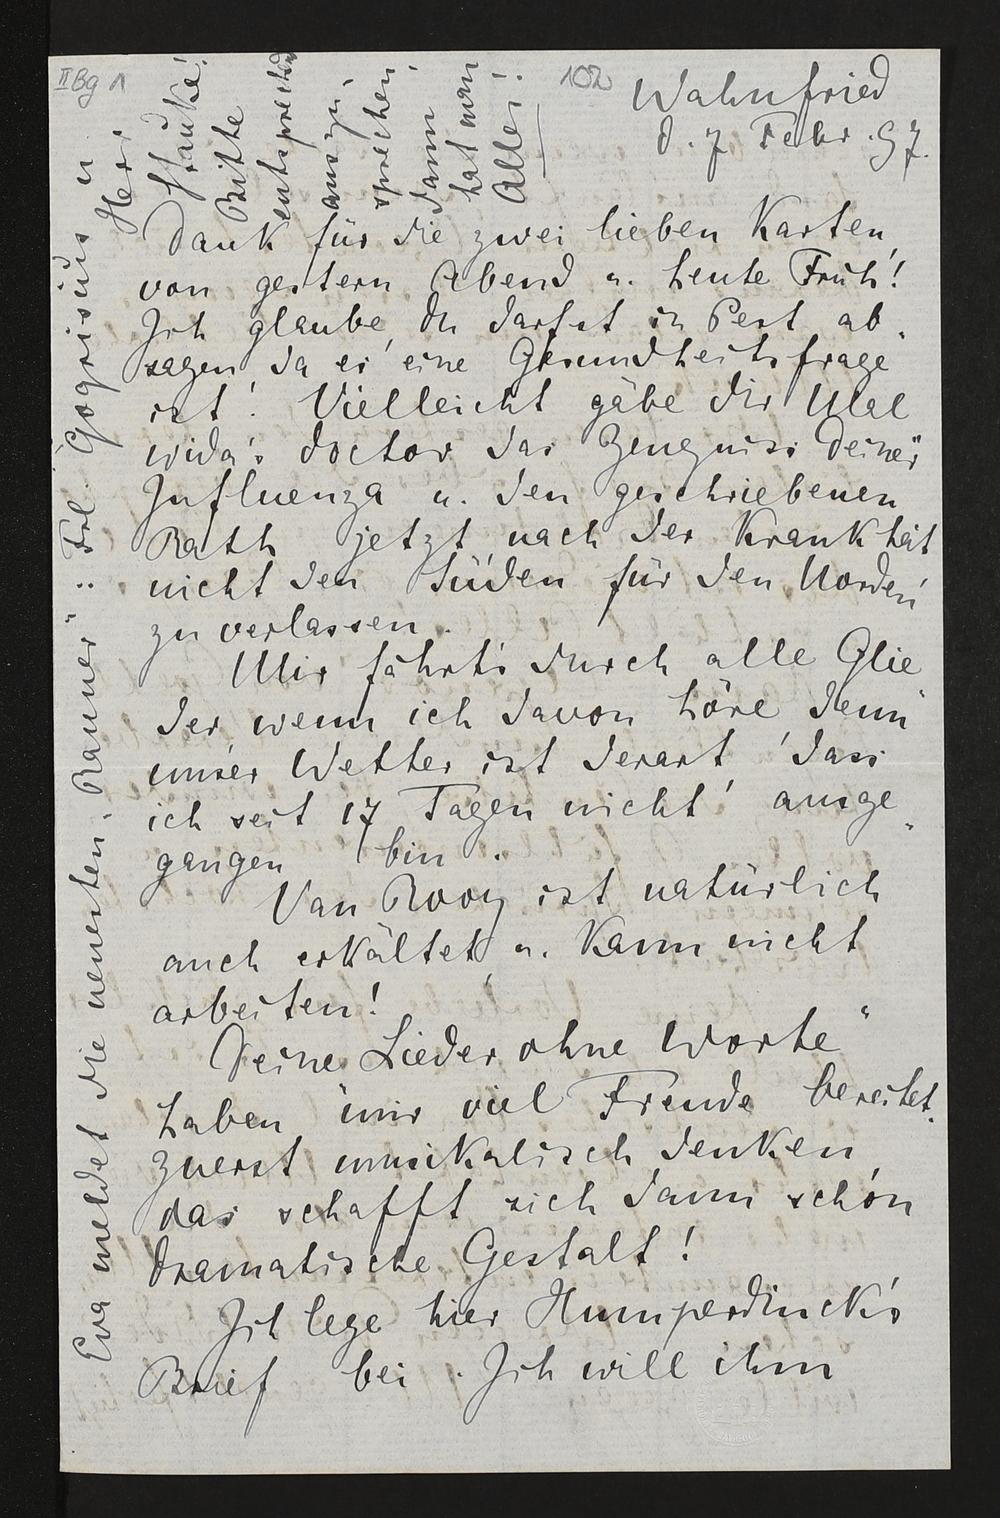 II Bg 1
102
Wahnfried
d. 7 Febr. 97.
Dank für die zwei lieben Karten,
von gestern Abend u. heute Früh!
Ich glaube, du darfst in Pest ab-
sagen da es eine Gesundheitsfrage
ist! Vielleicht gäbe dir Mal
wida's Doctor das Zeugniss Deiner
Influenza u. den geschriebenen
Rath jetzt, nach der Krankheit
nicht den Süden für den Norden
zu verlassen.
Mir fährt's durch alle Glie
der, wenn ich davon höre denn
unser Wetter ist derart, dass
ich seit 17 Tagen nicht ausge-
gangen bin.
Van Rooy ist natürlich
auch erkältet u. kann nicht
arbeiten!
Deine „Lieder ohne Worte"
haben mir viel Freude bereitet.
Zuerst musikalisch denken,
das schafft sich dann schon
dramatische Gestalt!
Ich lege hier Humperdinck's
Brief bei. Ich will ihm
Eva meldet die neuesten „Rauner": Frl. Gogrisius u.
Herr
Franke!
Bitte
entsprechend
auszu-
sprechen,
dann
hat man
Alles!